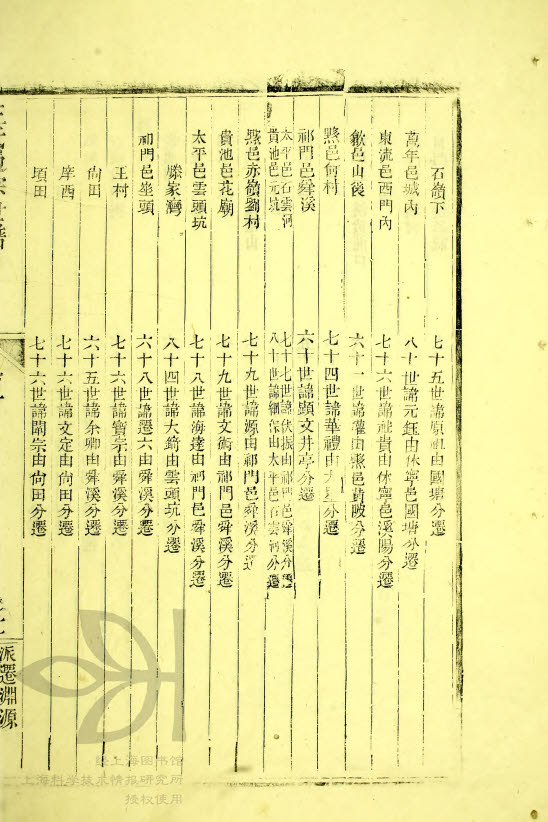 石嶺下 七十五世諱原祖由國塘分遷
萬年邑城內 八十世諱元鈺由休寧邑國塘分遷
東流邑西門內 七十六世諱 貴由休寧邑溪陽分遷
歙邑山後 六十一世諱 由黟邑黄陂分遷
黟邑 村 七十四世諱華禮由 分遷
祁門邑舜溪 六十世諱顯文井亭分遷
太平邑石雲河 七十七世諱伏振由祁門邑舜溪分遷
貴池邑元坑 八十世諱 保由太平邑石雲河分遷
黟邑赤嶺劉村 七十九世諱源由祁門邑舜溪分遷
貴池邑花廟 七十九世諱文術由祁門邑舜溪分遷
太平邑雲頭坑 七十八世諱海達由祁門邑舜溪分遷
滕家灣 八十四世諱大錡由雲頭坑分遷
祁門邑 頭 六十八世諱遷六由舜溪分遷
王村 七十六世諱寶宗由舜溪分遷
尙田 六十五世諱余卿由舜溪分遷
摩西 七十六世諱文定由尙田分遷
項田 七十六世諱閏宗由尙田分遷
派遷淵源
经上海图书馆
上海科学技术情报研究所
授权使用